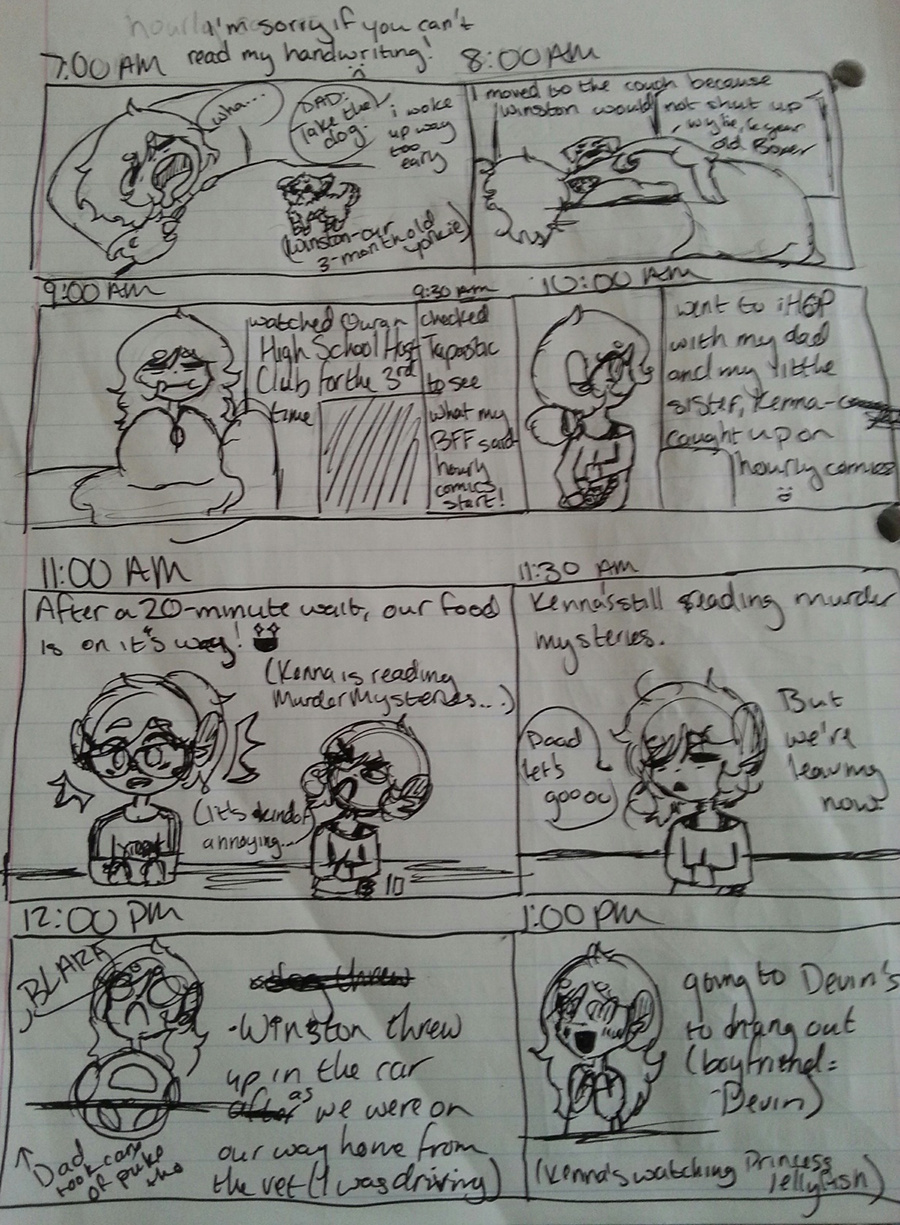 I'm sorry if you can't
read my handwriting!
7:00 AM
8:00 AM
wha...
DAD:
Take the
dog.
i woke
up way
too
early
(Winston-our
3-month old
yorkie)
I moved to the couch because
Winston would not shut up
year
old Boxer
9:00 AM
watched Ouran
High School Host
Club for the 3rd
time
9:30 AM
checked
Tapastic
to see
what my
BFF said
hourly
comics
start!
10:00 AM
went to iHOP
with my dad
and my little
sister, Kenna-
caught up on
hourly comics
11:00 AM
After a 20-minute wait, our food
is on it's way!
(Kenna is reading
Murder Mysteries...)
(it's kinda
annoying...)
11:30 AM
Kenna's still reading murder
mysteries.
Daad
let's
goooo
But
we're
leaving
now
12:00 PM
BLARA
-Winston threw
up in the car
as we were on
our way home from
the vet (I was driving)
Dad
took care
of puke
tho
1:00 PM
going to Devin's
to hang out
(boyfriend=
Devin)
(Kenna's watching Princess
Jellyfish)